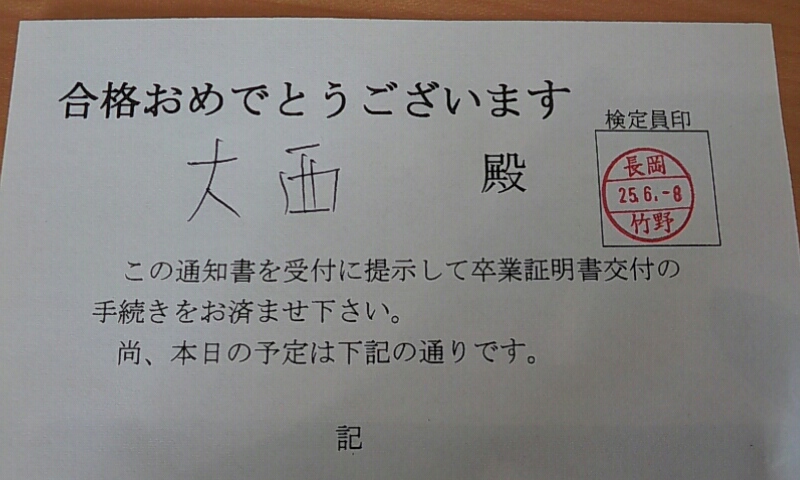 合格おめでとうございます
大西 殿
検定員印
長岡
25.6.-8
竹野
この通知書を受付に提示して卒業証明書交付の
手続きをお済ませ下さい。
尚、本日の予定は下記の通りです。
記